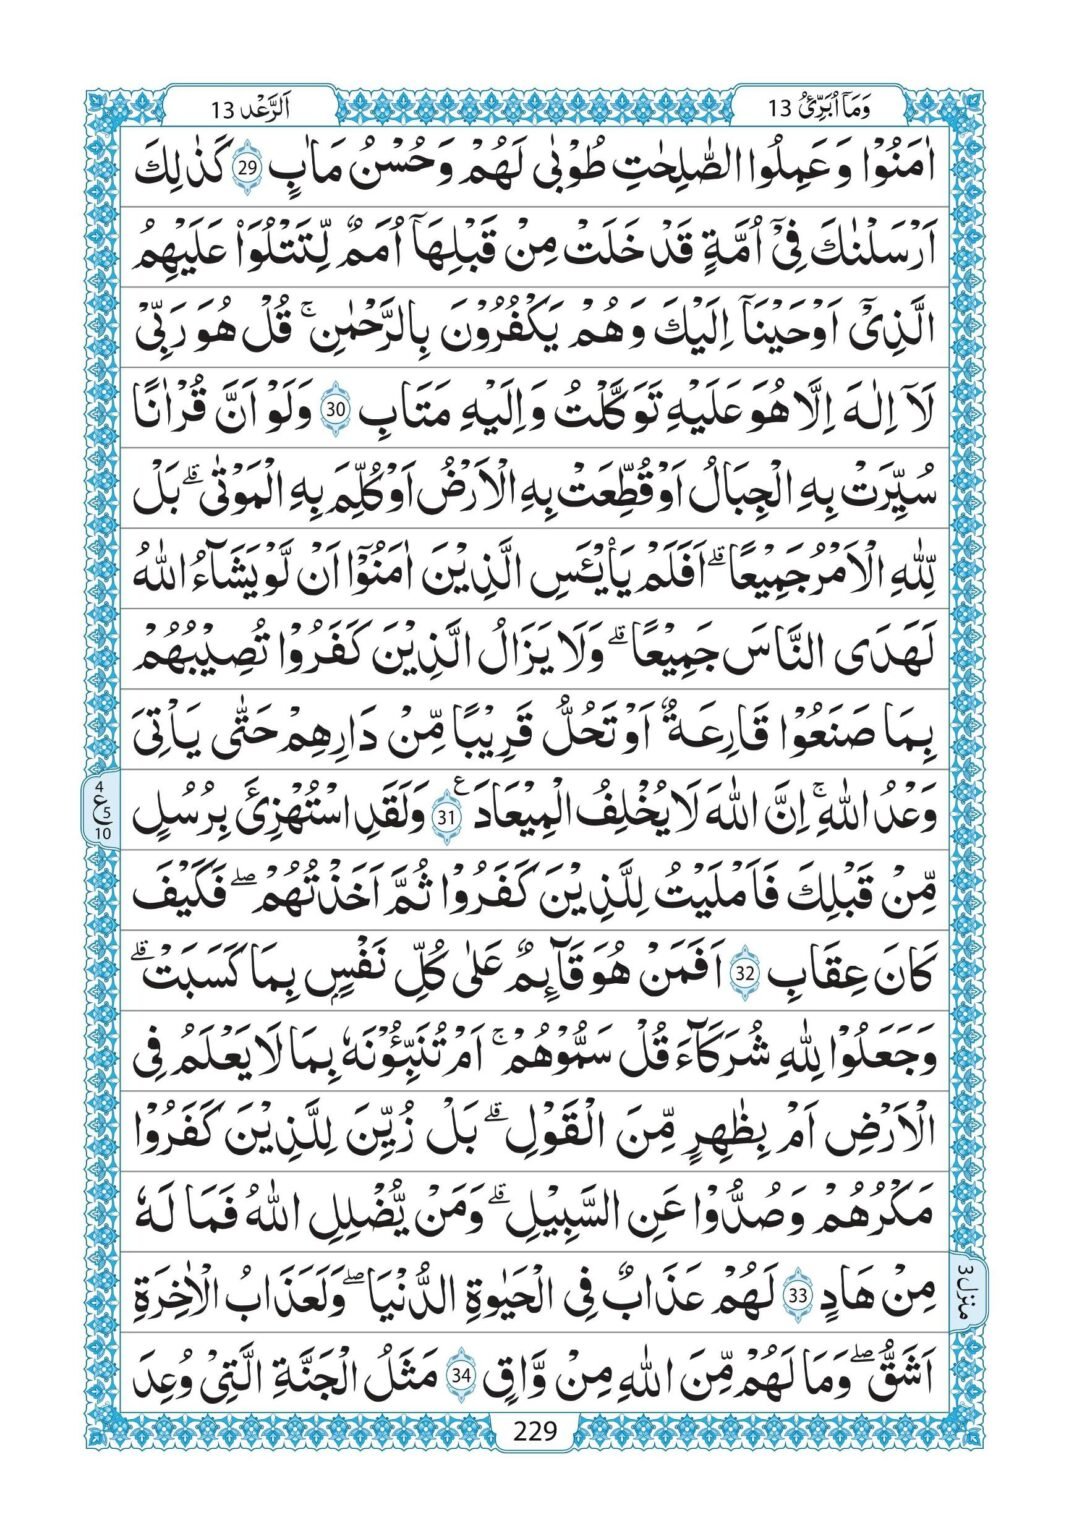 وَمَآ اُبَرِّئُ 13
اَلرَّعْد 13
اٰمَنُوْا وَعَمِلُوا الصّٰلِحٰتِ طُوْبٰى لَهُمْ وَحُسْنُ مَاٰبٍ 29 كَذٰلِكَ
اَرْسَلْنٰكَ فِيْٓ اُمَّةٍ قَدْ خَلَتْ مِنْ قَبْلِهَآ اُمَمٌ لِّتَتْلُوَا۟ عَلَيْهِمُ
الَّذِيْٓ اَوْحَيْنَآ اِلَيْكَ وَهُمْ يَكْفُرُوْنَ بِالرَّحْمٰنِ ۚ قُلْ هُوَ رَبِّيْ
لَآ اِلٰهَ اِلَّا هُوَ عَلَيْهِ تَوَكَّلْتُ وَاِلَيْهِ مَتَابِ 30 وَلَوْ اَنَّ قُرْاٰنًا
سُيِّرَتْ بِهِ الْجِبَالُ اَوْ قُطِّعَتْ بِهِ الْاَرْضُ اَوْ كُلِّمَ بِهِ الْمَوْتٰى ۗ بَلْ
لِّلّٰهِ الْاَمْرُ جَمِيْعًا ۗ اَفَلَمْ يَا۟يْـَٔسِ الَّذِيْنَ اٰمَنُوْٓا اَنْ لَّوْ يَشَآءُ اللّٰهُ
لَهَدَى النَّاسَ جَمِيْعًا ۗ وَلَا يَزَالُ الَّذِيْنَ كَفَرُوْا تُصِيْبُهُمْ
بِمَا صَنَعُوْا قَارِعَةٌ اَوْ تَحُلُّ قَرِيْبًا مِّنْ دَارِهِمْ حَتّٰى يَاْتِيَ
وَعْدُ اللّٰهِ ۚ اِنَّ اللّٰهَ لَا يُخْلِفُ الْمِيْعَادَ ع 31 وَلَقَدِ اسْتُهْزِئَ بِرُسُلٍ
4 ع 5 10
مِّنْ قَبْلِكَ فَاَمْلَيْتُ لِلَّذِيْنَ كَفَرُوْا ثُمَّ اَخَذْتُهُمْ ۖ فَكَيْفَ
كَانَ عِقَابِ 32 اَفَمَنْ هُوَ قَآىِٕمٌ عَلٰى كُلِّ نَفْسٍۭ بِمَا كَسَبَتْ ۗ
وَجَعَلُوْا لِلّٰهِ شُرَكَآءَ قُلْ سَمُّوْهُمْ ۚ اَمْ تُنَبِّـُٔوْنَهٗ بِمَا لَا يَعْلَمُ فِي
الْاَرْضِ اَمْ بِظَٰهِرٍ مِّنَ الْقَوْلِ ۗ بَلْ زُيِّنَ لِلَّذِيْنَ كَفَرُوْا
مَكْرُهُمْ وَصُدُّوْا عَنِ السَّبِيْلِ ۗ وَمَنْ يُّضْلِلِ اللّٰهُ فَمَا لَهٗ
مِنْ هَادٍ 33 لَهُمْ عَذَابٌ فِي الْحَيٰوةِ الدُّنْيَا ۖ وَلَعَذَابُ الْاٰخِرَةِ
منزل 3
اَشَقُّ ۖ وَمَا لَهُمْ مِّنَ اللّٰهِ مِنْ وَّاقٍ 34 مَثَلُ الْجَنَّةِ الَّتِيْ وُعِدَ
229